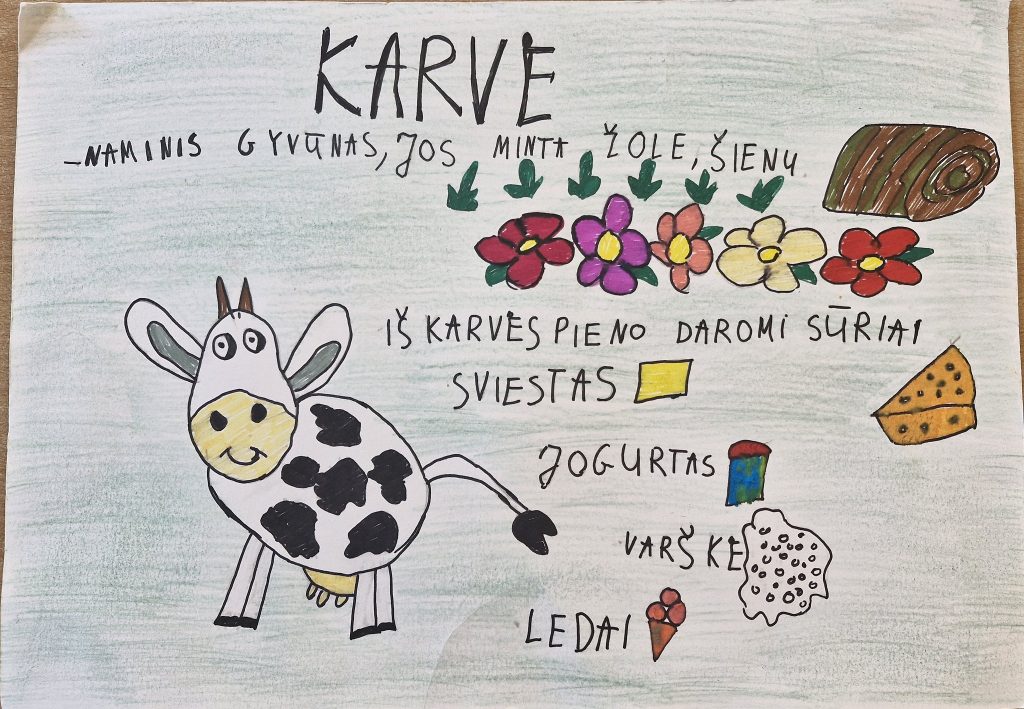 KARVE
–NAMINIS GYVŪNAS, JOS MINTA ŽOLE, ŠIENŲ
IŠ KARVĖS PIENO DAROMI SŪRIAI
SVIESTAS
JOGURTAS
VARŠKĖ
LEDAI